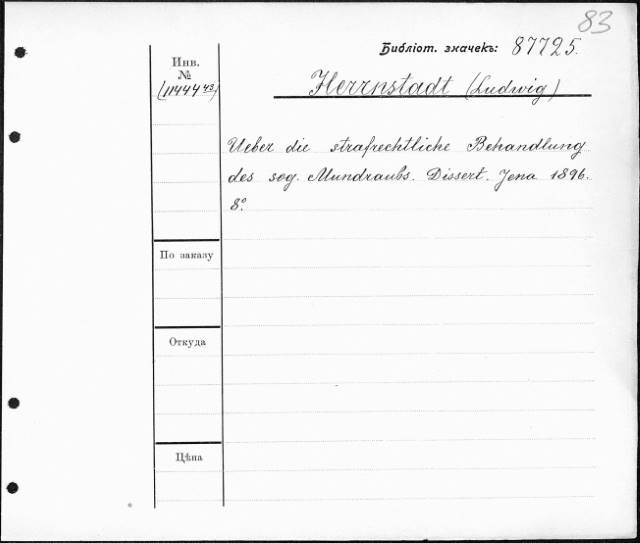 83
Библіот. значекъ: 87725.
Инв.
№
(11444 43)
Herrnstadt (Ludwig)
Ueber die strafrechtliche Behandlung
des sog. Mundraubs. Dissert. Jena 1896.
8°.
По заказу
Откуда
Цѣна